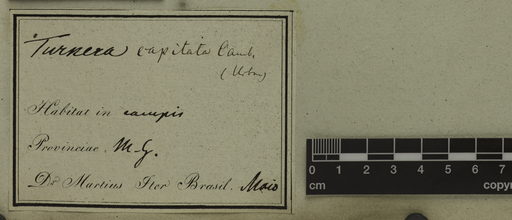 Turnera capitata Camb.
(Urban)
Habitat in campis
Provinciae. M-G.
Dr. Martius Iter Brasil. Maio
0 1 2 3 4 5 6 7
cm copy